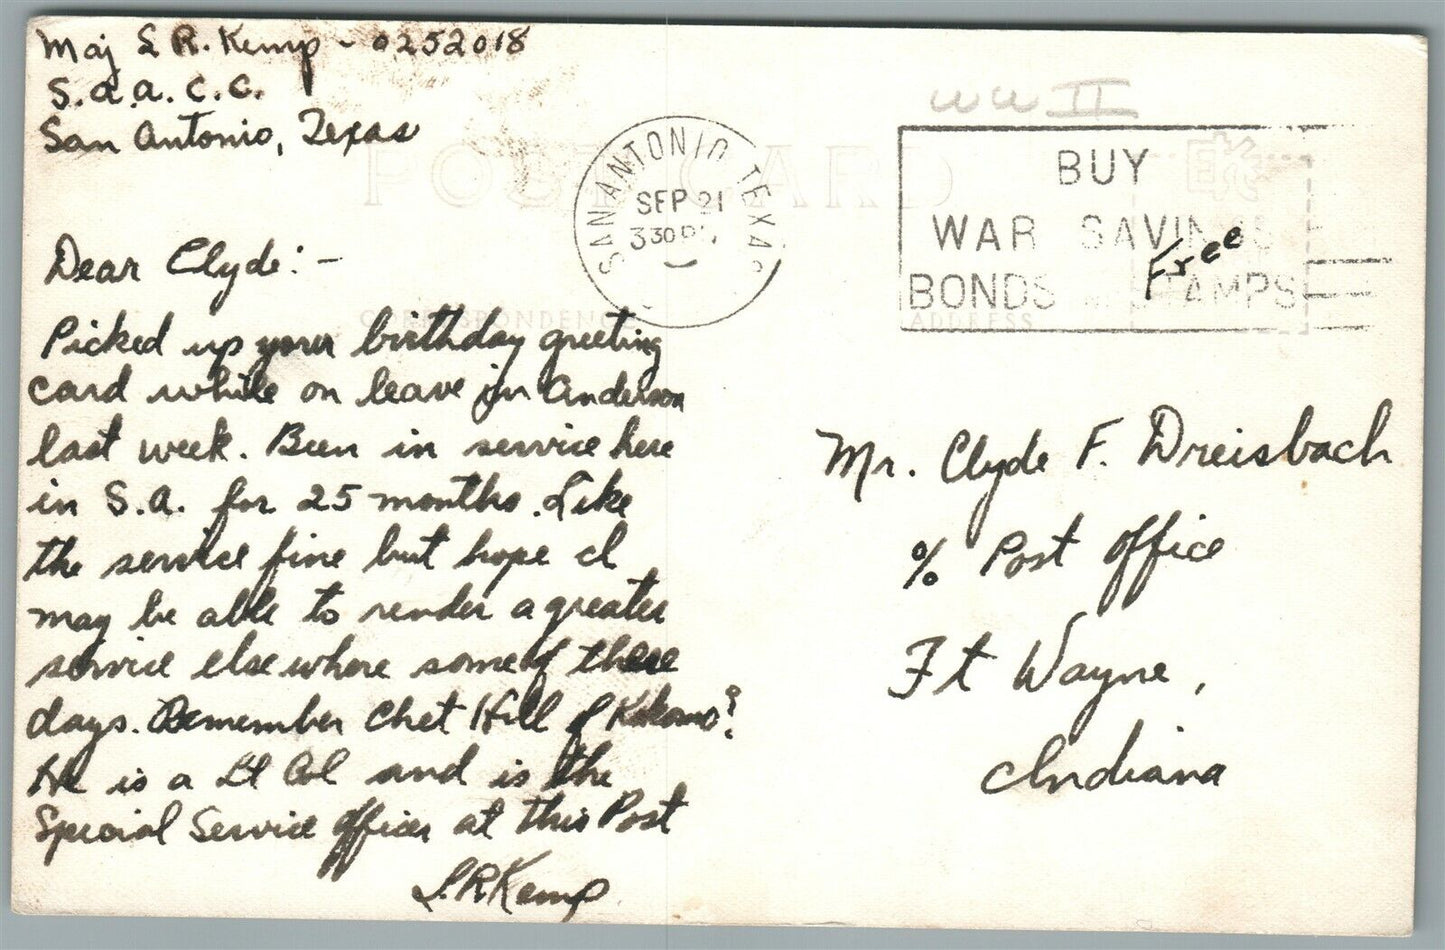 Maj L R. Kemp - 0252018
S.A.A.C.C.
San Antonio, Texas
WW II
POST CARD
SAN ANTONIO, TEXAS
SEP 21
3 30 PM
BUY
WAR SAVINGS
BONDS AND STAMPS
Free
CORRESPONDENCE
ADDRESS
Dear Clyde: -
Picked up your birthday greeting
card while on leave in Anderson
last week. Been in service here
in S.A. for 25 months. Like
the service fine but hope I
may be able to render a greater
service elsewhere some of these
days. Remember Chet Hill of Kokomo?
He is a Lt Col and is the
Special Service Officer at this Post
L.R. Kemp
Mr. Clyde F. Dreisbach
% Post Office
Ft Wayne,
Indiana